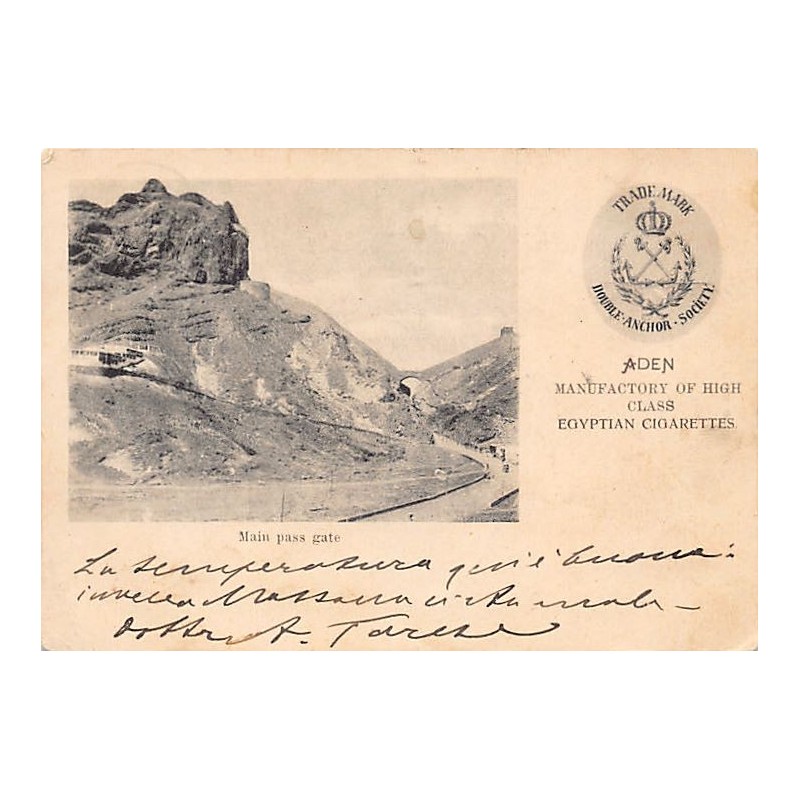 TRADE MARK
DOUBLE · ANCHOR · SOCIETY.
ADEN
MANUFACTORY OF HIGH
CLASS
EGYPTIAN CIGARETTES.
Main pass gate
La temperatura qui è buona:
invece a Massaua si sta male –
Dottr A.